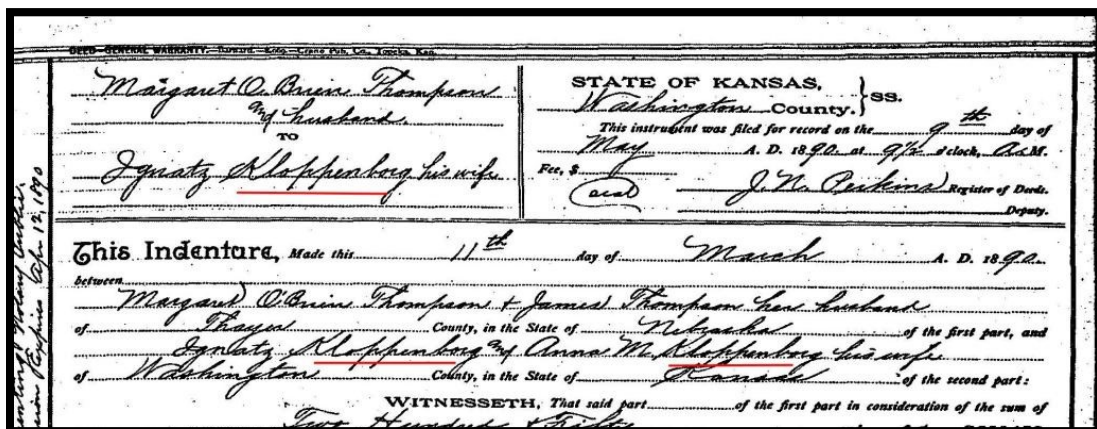 DEED—GENERAL WARRANTY.—Crane Pub. Co., Topeka, Kan.
Margaret O'Brien Thompson
and husband.
TO
Ignatz Kloppenborg his wife
STATE OF KANSAS,
Washington County. } SS.
This instrument was filed for record on the 9th day of
May A. D. 1890. at 9½ o'clock, A. M.
Fee, $
(seal)
J. N. Perkins Register of Deeds.
Deputy.
This Indenture, Made this 11th day of March A. D. 1890.
between
Margaret O'Brien Thompson & James Thompson her husband
of Thayer County, in the State of Nebraska of the first part, and
Ignatz Kloppenborg and Anna M. Kloppenborg his wife
of Washington County, in the State of Kansas of the second part:
WITNESSETH, That said part of the first part in consideration of the sum of
Two Hundred & Fifty
Notary
Expires Apr 12, 1890